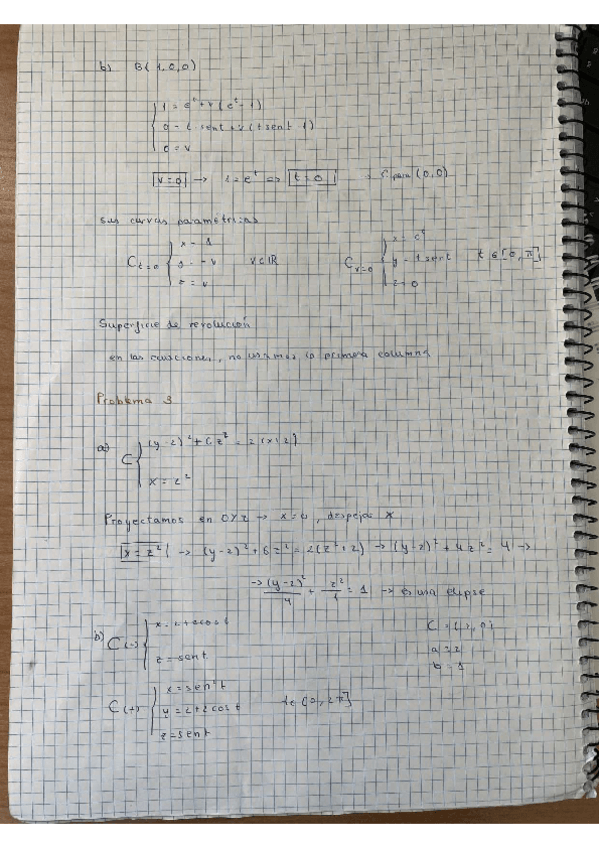 b) B(1,0,0)
1 = e^t + v(e^t - 1)
0 = t·sent + v(t sent - 1)
0 = v
v=0 → 1 = e^t => t=0 para (0,0)
curvas paramétricas
C_{t=0} x = 1 v∈IR C_{v=0} x = e^t
y = t sent t ∈ [0, π]
= -v
= v z = 0
Superficie de revolución
en las ecuaciones, no usamos la primera columna
Problema 3
a) C (y-2)² + 6z² = 2(x+2)
x = z²
Proyectamos en OYZ → x=0, despejar x
x = z² → (y-2)² + 6z² = 2(z²+2) → (y-2)² + 4z² = 4 →
→ (y-2)²/4 + z²/1 = 1 → es una elipse
b) C = 2+2cost
z = sent
a = 2
b = 1
C(t) x = sen²t
y = 2+2cost t∈[0, 2π]
z = sent